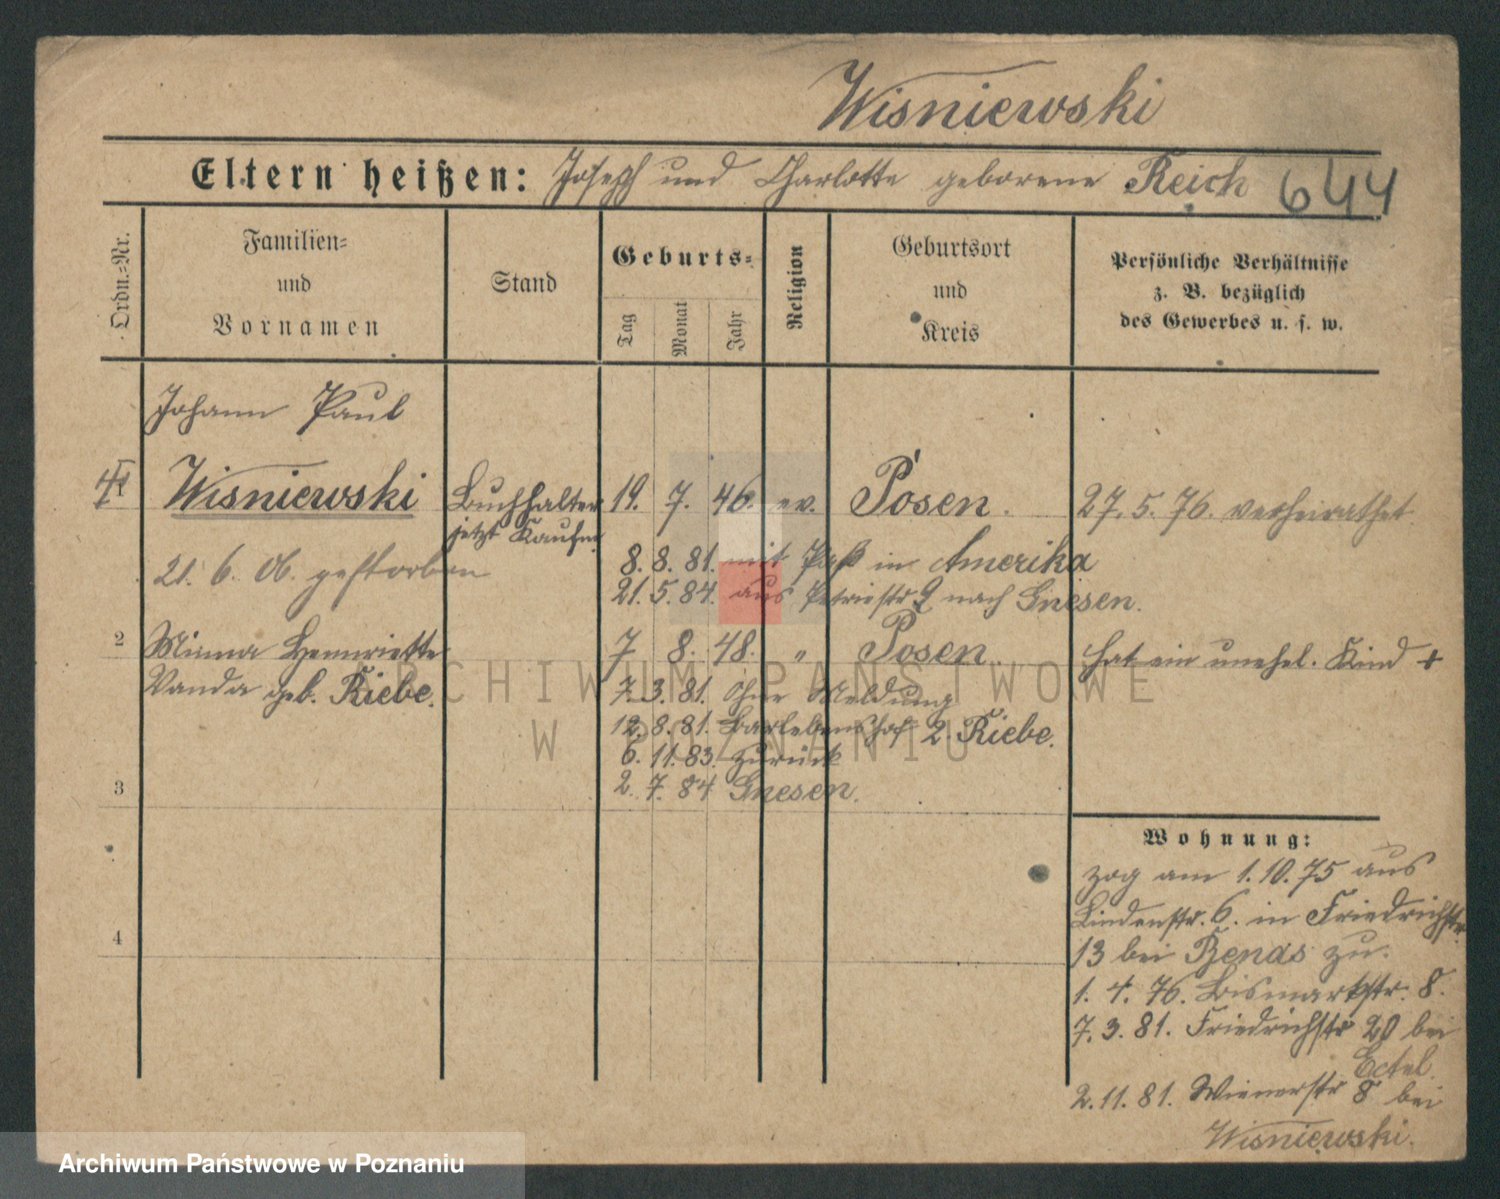 Wisniewski
Eltern heißen: Joseph und Charlotte geborene Reich 644
Ordn.=Nr.
Familien=
und
Vornamen
Stand
Geburts=
Tag
Monat
Jahr
Religion
Geburtsort
und
Kreis
Persönliche Verhältnisse
z. B. bezüglich
des Gewerbes u. s. w.
Johann Paul
1 Wisniewski Buchhalter 19. 7. 46. ev. Posen. 27. 5. 76. verheirathet
jetzt Kaufm.
21. 6. 06. gestorben
8. 8. 81. mit Paß in Amerika
21. 5. 84. aus Petristr 9 nach Gnesen.
2 Minna Hennriette 7 8. 48. " Posen. hat ein unehel. Kind +
Vanda geb. Riebe.
7. 3. 81. Ohne Meldung
12. 8. 81. Barlebenshof 2. Riebe.
6. 11. 83. zurück
3 2. 7. 84 Gnesen.
4
Wohnung:
zog am 1. 10. 75 aus
Lindenstr. 6. in Friedrichstr.
13 bei Bends zu.
1. 4. 76. Bismarkstr. 8.
7. 3. 81. Friedrichstr 20 bei
Ectel.
2. 11. 81. Wienerstr 8 bei
Wisniewski.
ARCHIWUM PAŃSTWOWE
W POZNANIU
Archiwum Państwowe w Poznaniu